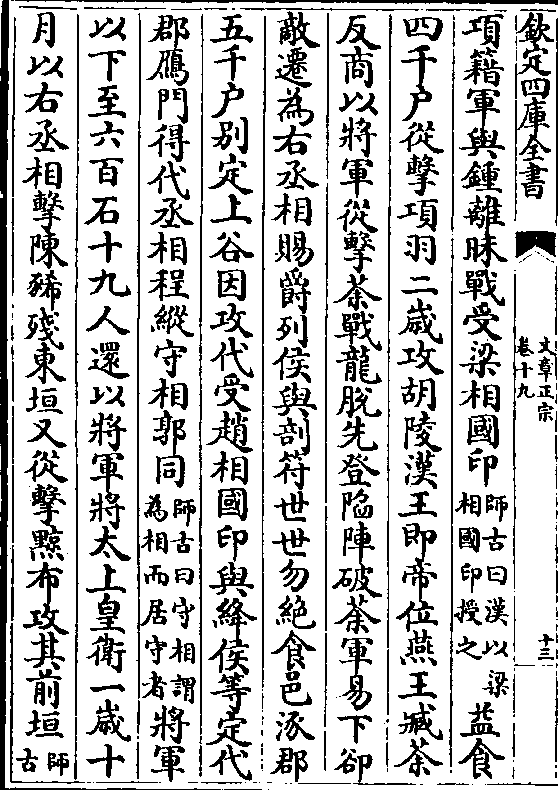 欽定四庫全書
文章正宗
卷十九
十三
項籍軍與鍾離昧戰受梁相國印師古曰漢以梁相國印授之益食
四千户從擊項羽二歲攻胡陵漢王即帝位燕王臧荼
反商以將軍從擊荼戰龍脫先登陷陣破荼軍易下卻
敵遷為右丞相賜爵列侯與剖符世世勿絶食邑涿郡
五千户别定上谷因攻代受趙相國印與絳侯等定代
郡鴈門得代丞相程縱守相郭同師古曰守相謂為相而居守者將軍
以下至六百石十九人還以將軍將太上皇衛一歲十
月以右丞相擊陳豨殘東垣又從擊黥布攻其前垣師古